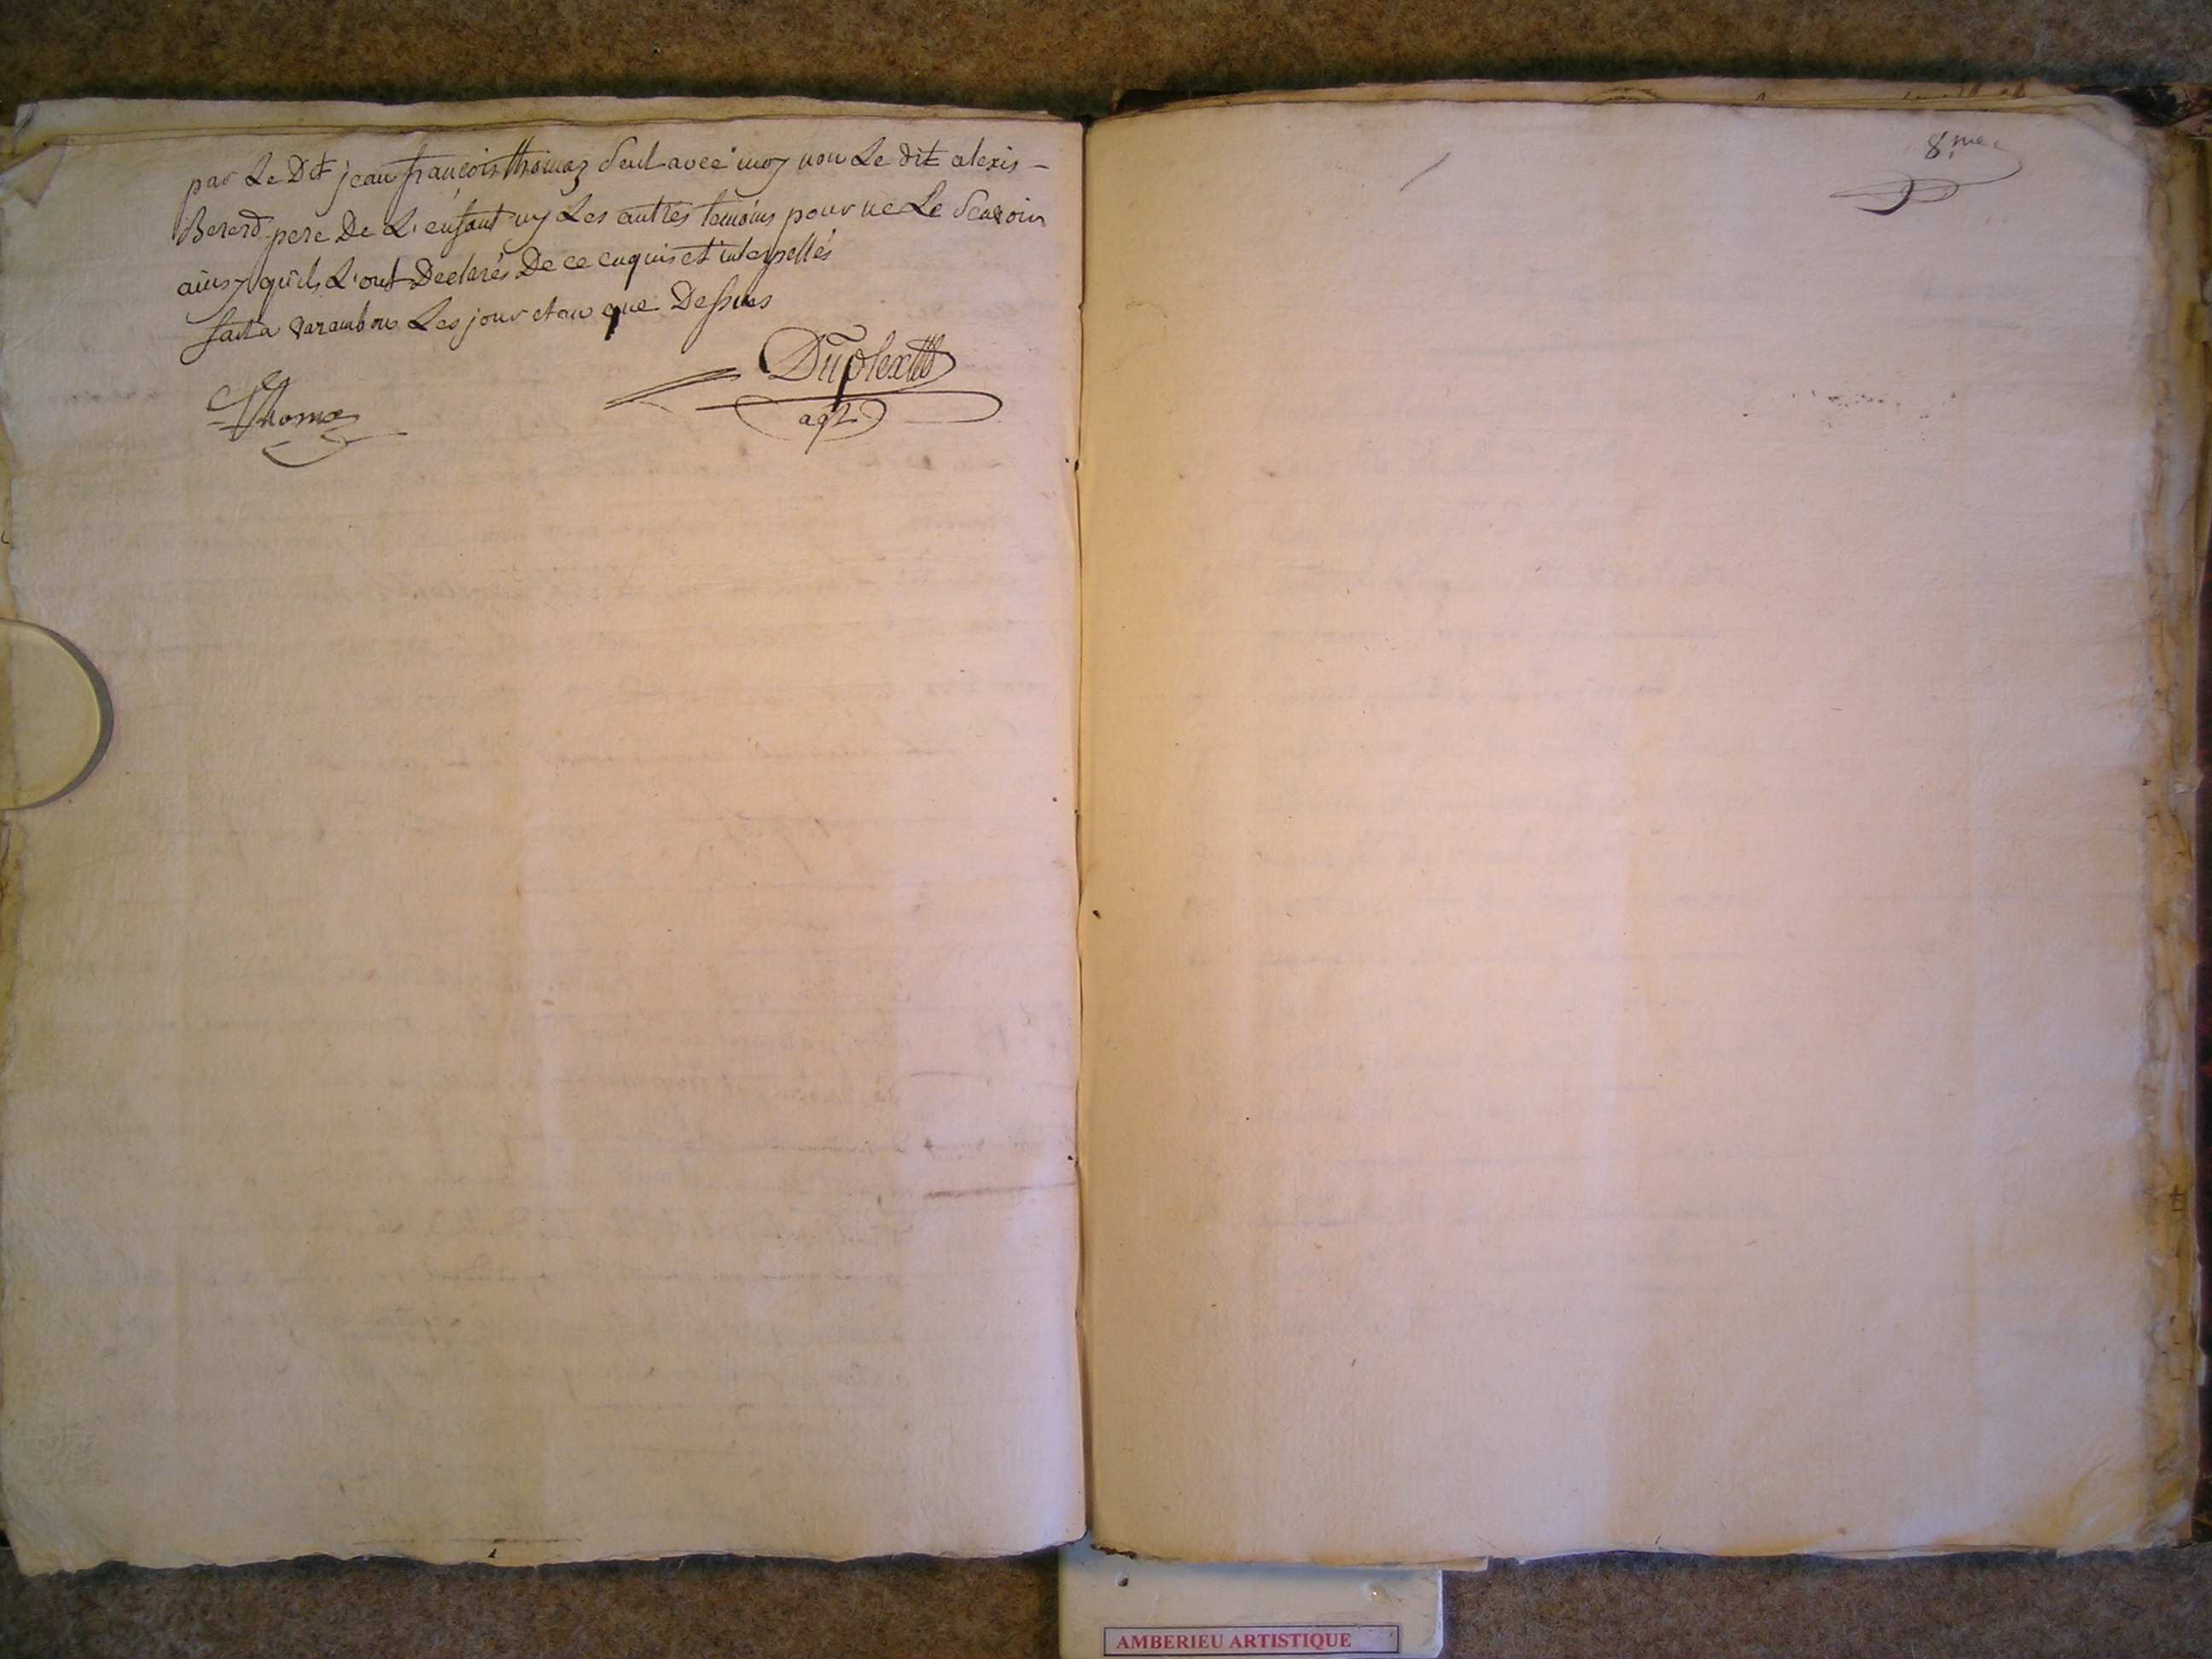 par Le Dit jean françois thomaz Seul avec moy non Le dit alexis -
Bererd pere De L'enfant ny Les autres temoins pour ne Le Scavoir
ainsy qu'ils L'ont Declarés De ce enquis et interpellés
fait a varambon Les jour et an que Dessus
Thomaz
Duplex
8me
AMBERIEU ARTISTIQUE